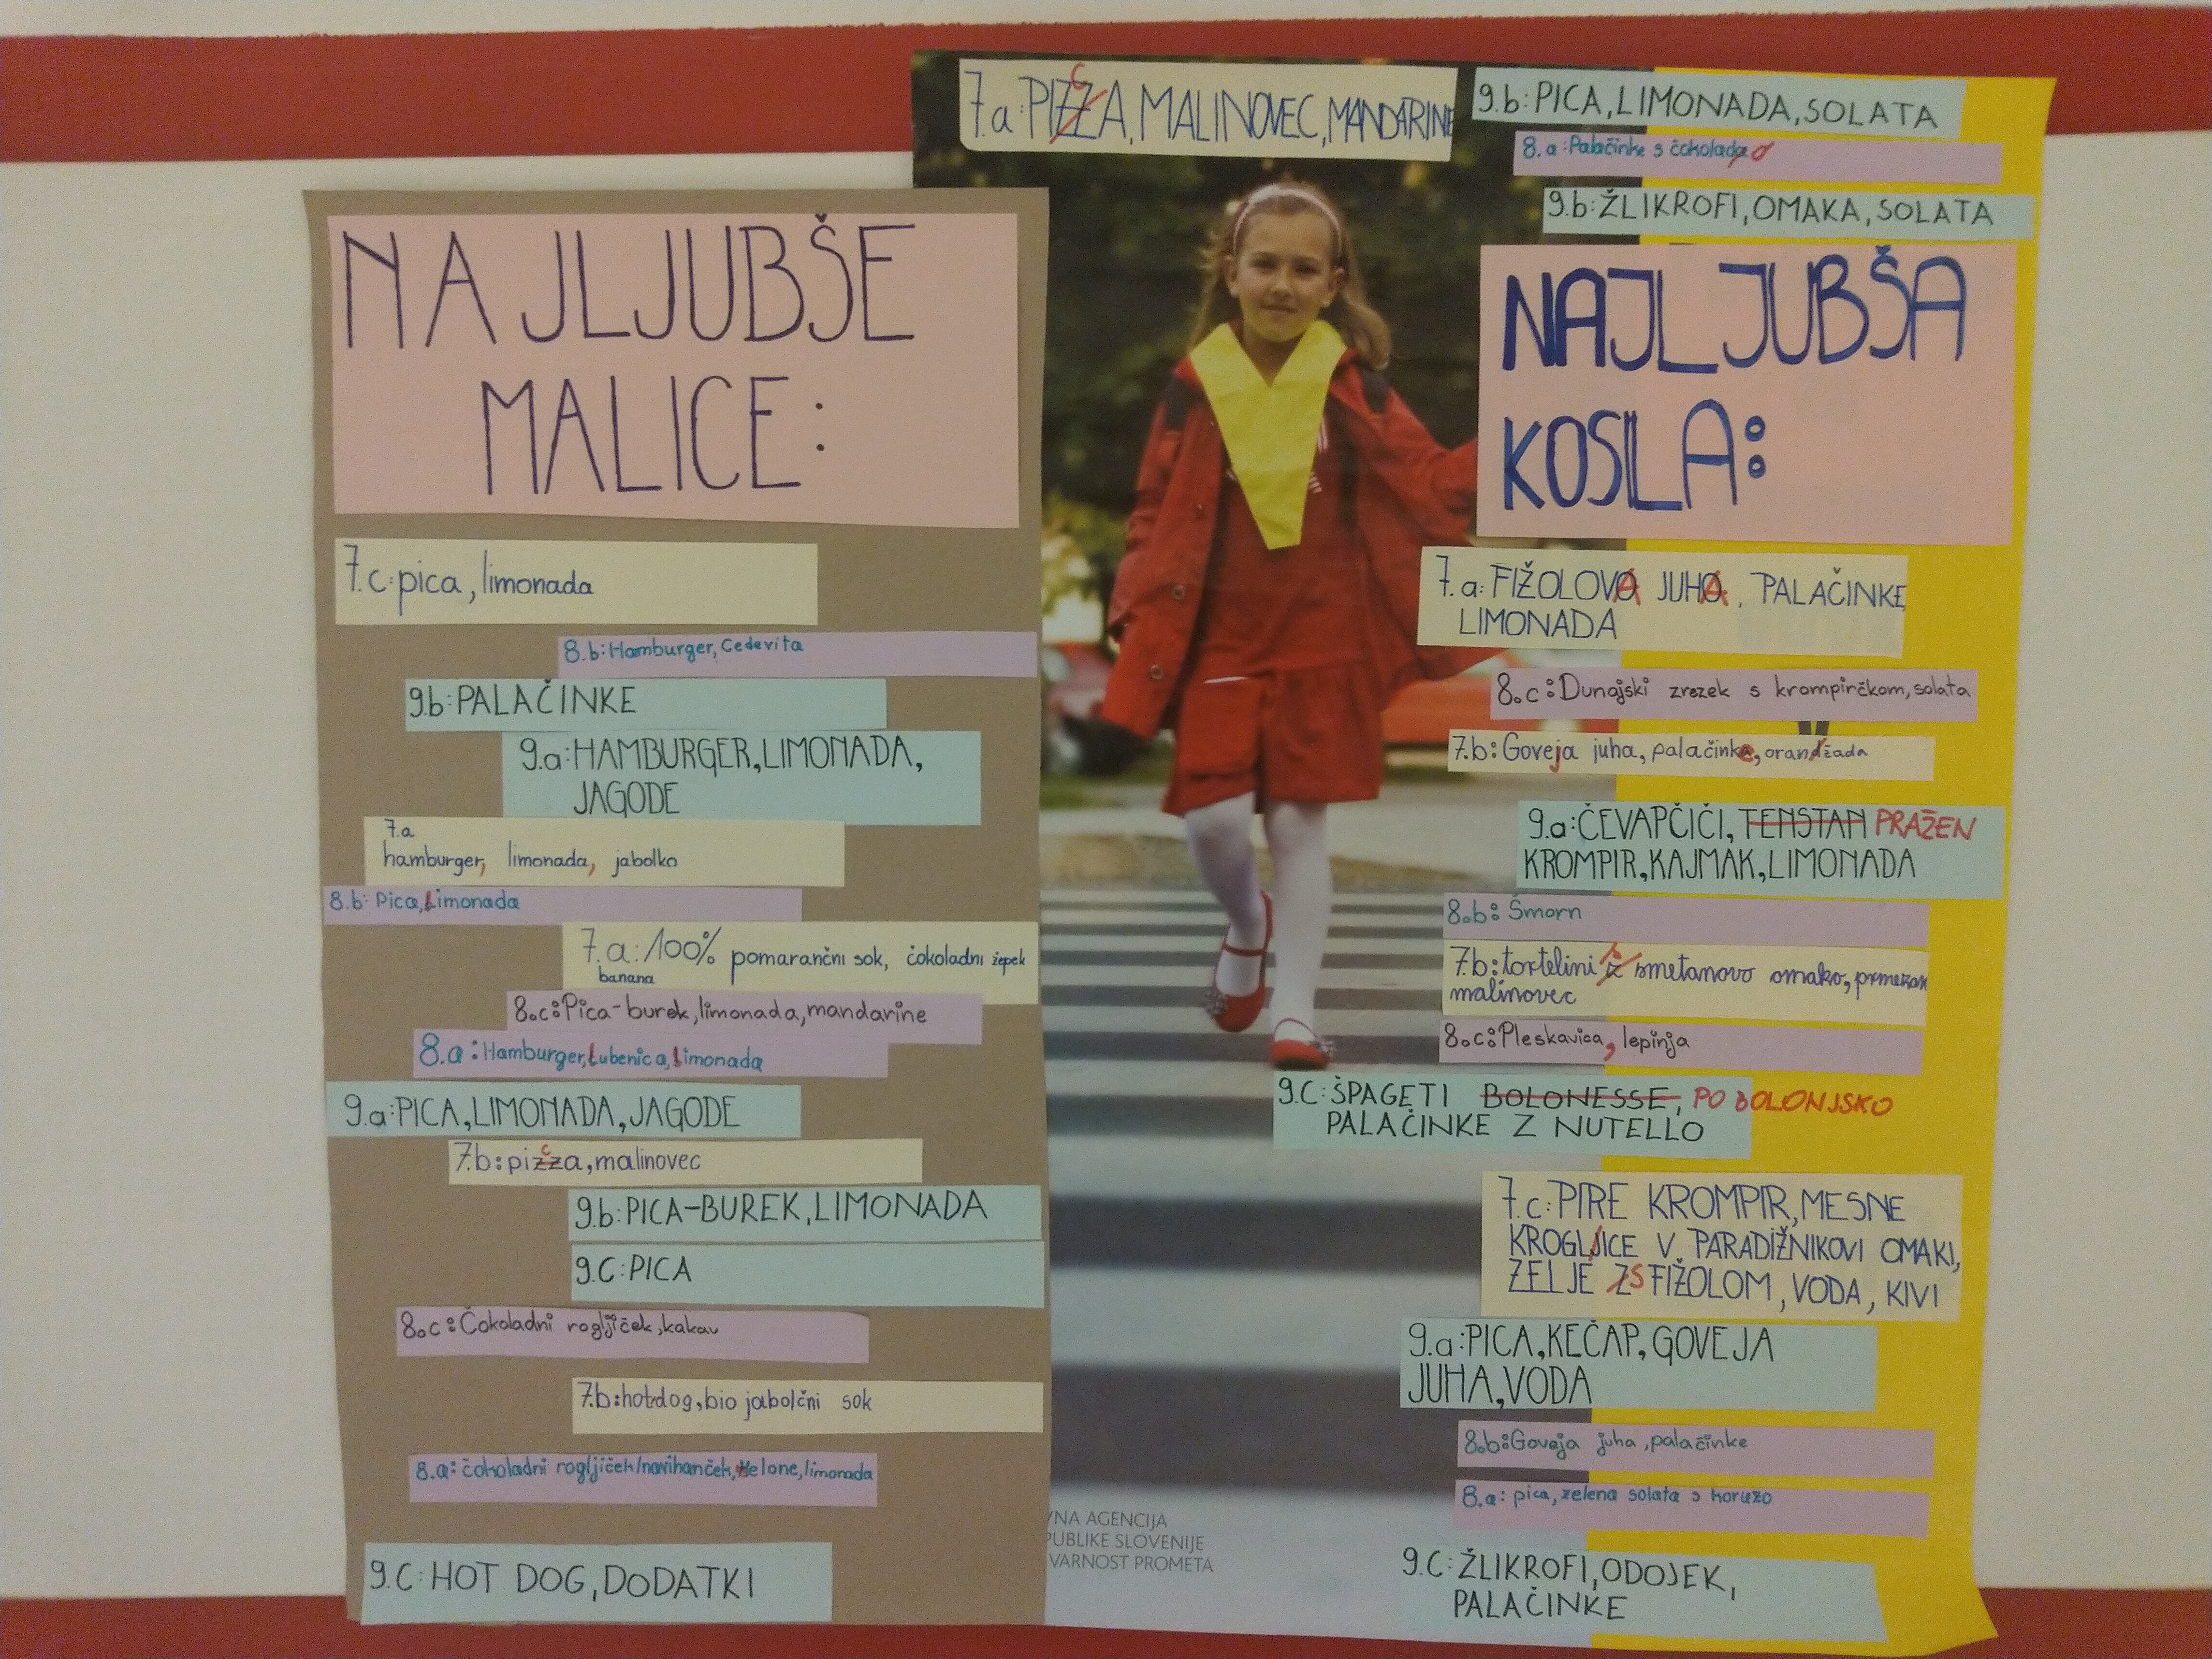 NAJLJUBŠE
MALICE:
7.c: pica, limonada
8.b: Hamburger, Cedevita
9.b: PALAČINKE
9.a: HAMBURGER, LIMONADA,
JAGODE
7.a
hamburger, limonada, jabolko
8.b: Pica, limonada
7.a: 100% pomarančni sok, čokoladni žepek
banana
8.c: Pica-burek, limonada, mandarine
8.a: Hamburger, lubenica, limonada
9.a: PICA, LIMONADA, JAGODE
7.b: pizza, malinovec
c
9.b: PICA-BUREK, LIMONADA
9.C: PICA
8.c: Čokoladni rogljiček, kakav
7.b: hotdog, bio jabolčni sok
8.a: čokoladni rogljiček/navihanček, melone, limonada
9.C: HOT DOG, DODATKI
7.a: PIZZA, MALINOVEC, MANDARINE
C
9.b: PICA, LIMONADA, SOLATA
8.a: Palačinke s čokolado
9.b: ŽLIKROFI, OMAKA, SOLATA
NAJLJUBŠA
KOSILA:
7.a: FIŽOLOVA JUHA, PALAČINKE
LIMONADA
8.c: Dunajski zrezek s krompirčkom, solata
7.b: Goveja juha, palačinke, orandžada
9.a: ČEVAPČIČI, TENSTAN PRAŽEN
KROMPIR, KAJMAK, LIMONADA
8.b: Šmorn
7.b: tortelini z s smetanovo omako, prmezan
malinovec
8.c: Pleskavica, lepinja
9.C: ŠPAGETI BOLONESSE, PO BOLONJSKO
PALAČINKE Z NUTELLO
7.c: PIRE KROMPIR, MESNE
KROGLJICE V PARADIŽNIKOVI OMAKI,
ZELJE Z S FIŽOLOM, VODA, KIVI
9.a: PICA, KEČAP, GOVEJA
JUHA, VODA
8.b: Goveja juha, palačinke
8.a: pica, zelena solata s koruzo
9.C: ŽLIKROFI, ODOJEK,
PALAČINKE
VNA AGENCIJA
PUBLIKE SLOVENIJE
VARNOST PROMETA